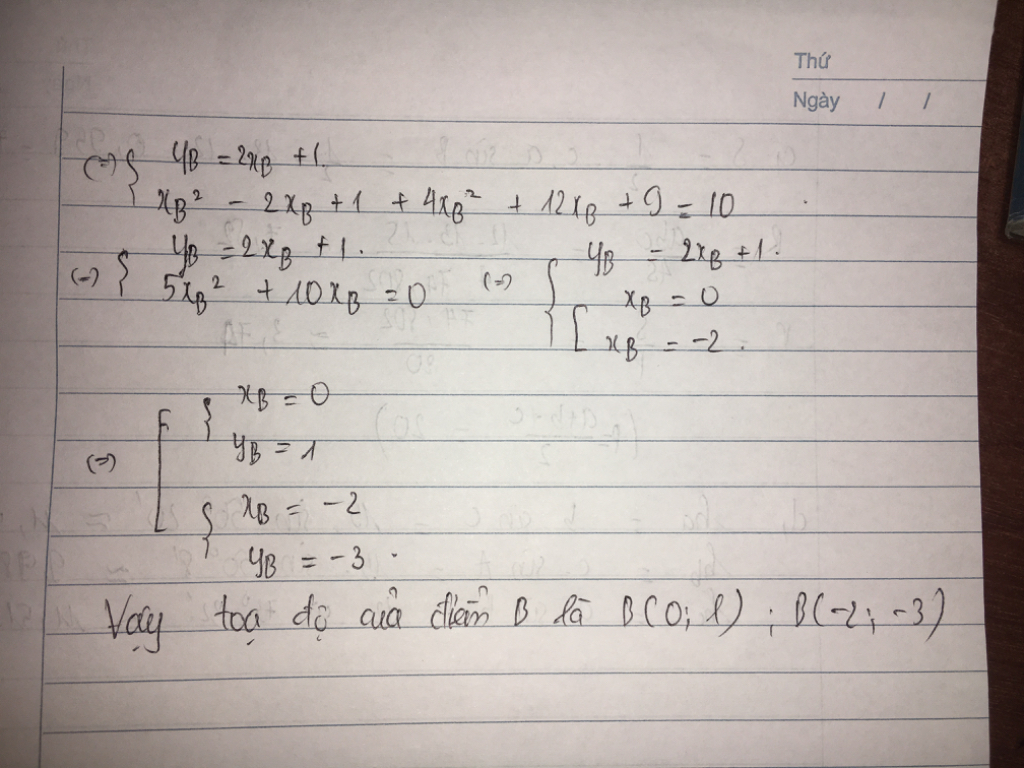 Thứ
Ngày / /
(=) { y_B = 2x_B + 1.
x_B² - 2x_B + 1 + 4x_B² + 12x_B + 9 = 10
(=) { y_B = 2x_B + 1. (=) { y_B = 2x_B + 1.
5x_B² + 10x_B = 0 [ x_B = 0
x_B = -2.
(=) [ { x_B = 0
y_B = 1
{ x_B = -2
y_B = -3.
Vậy toạ độ của điểm B là B(0; 1) ; B(-2; -3)